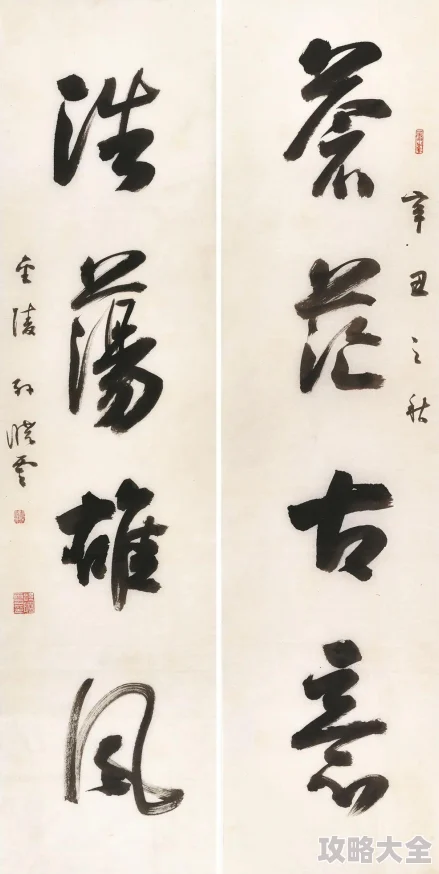 辛丑之秋
蒼茫古意
浩蕩雄風
金陵孙曉雲
攻略大全